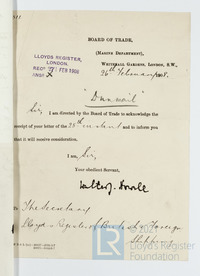 BOARD OF TRADE,
(MARINE DEPARTMENT),
WHITEHALL GARDENS, LONDON, S.W.,
LLOYD'S REGISTER,
LONDON.
26th February 1908.
REC'D 27 FEB 1908
"Dunmail"
Sir,
I am directed by the Board of Trade to acknowledge the
receipt of your letter of the 25th instant and to inform you
that it will receive consideration.
I am, Sir,
Your obedient Servant,
Walter J. Howell
To The Secretary
Lloyd's Register of British & Foreign
Shipping
Lloyd's Register
Foundation